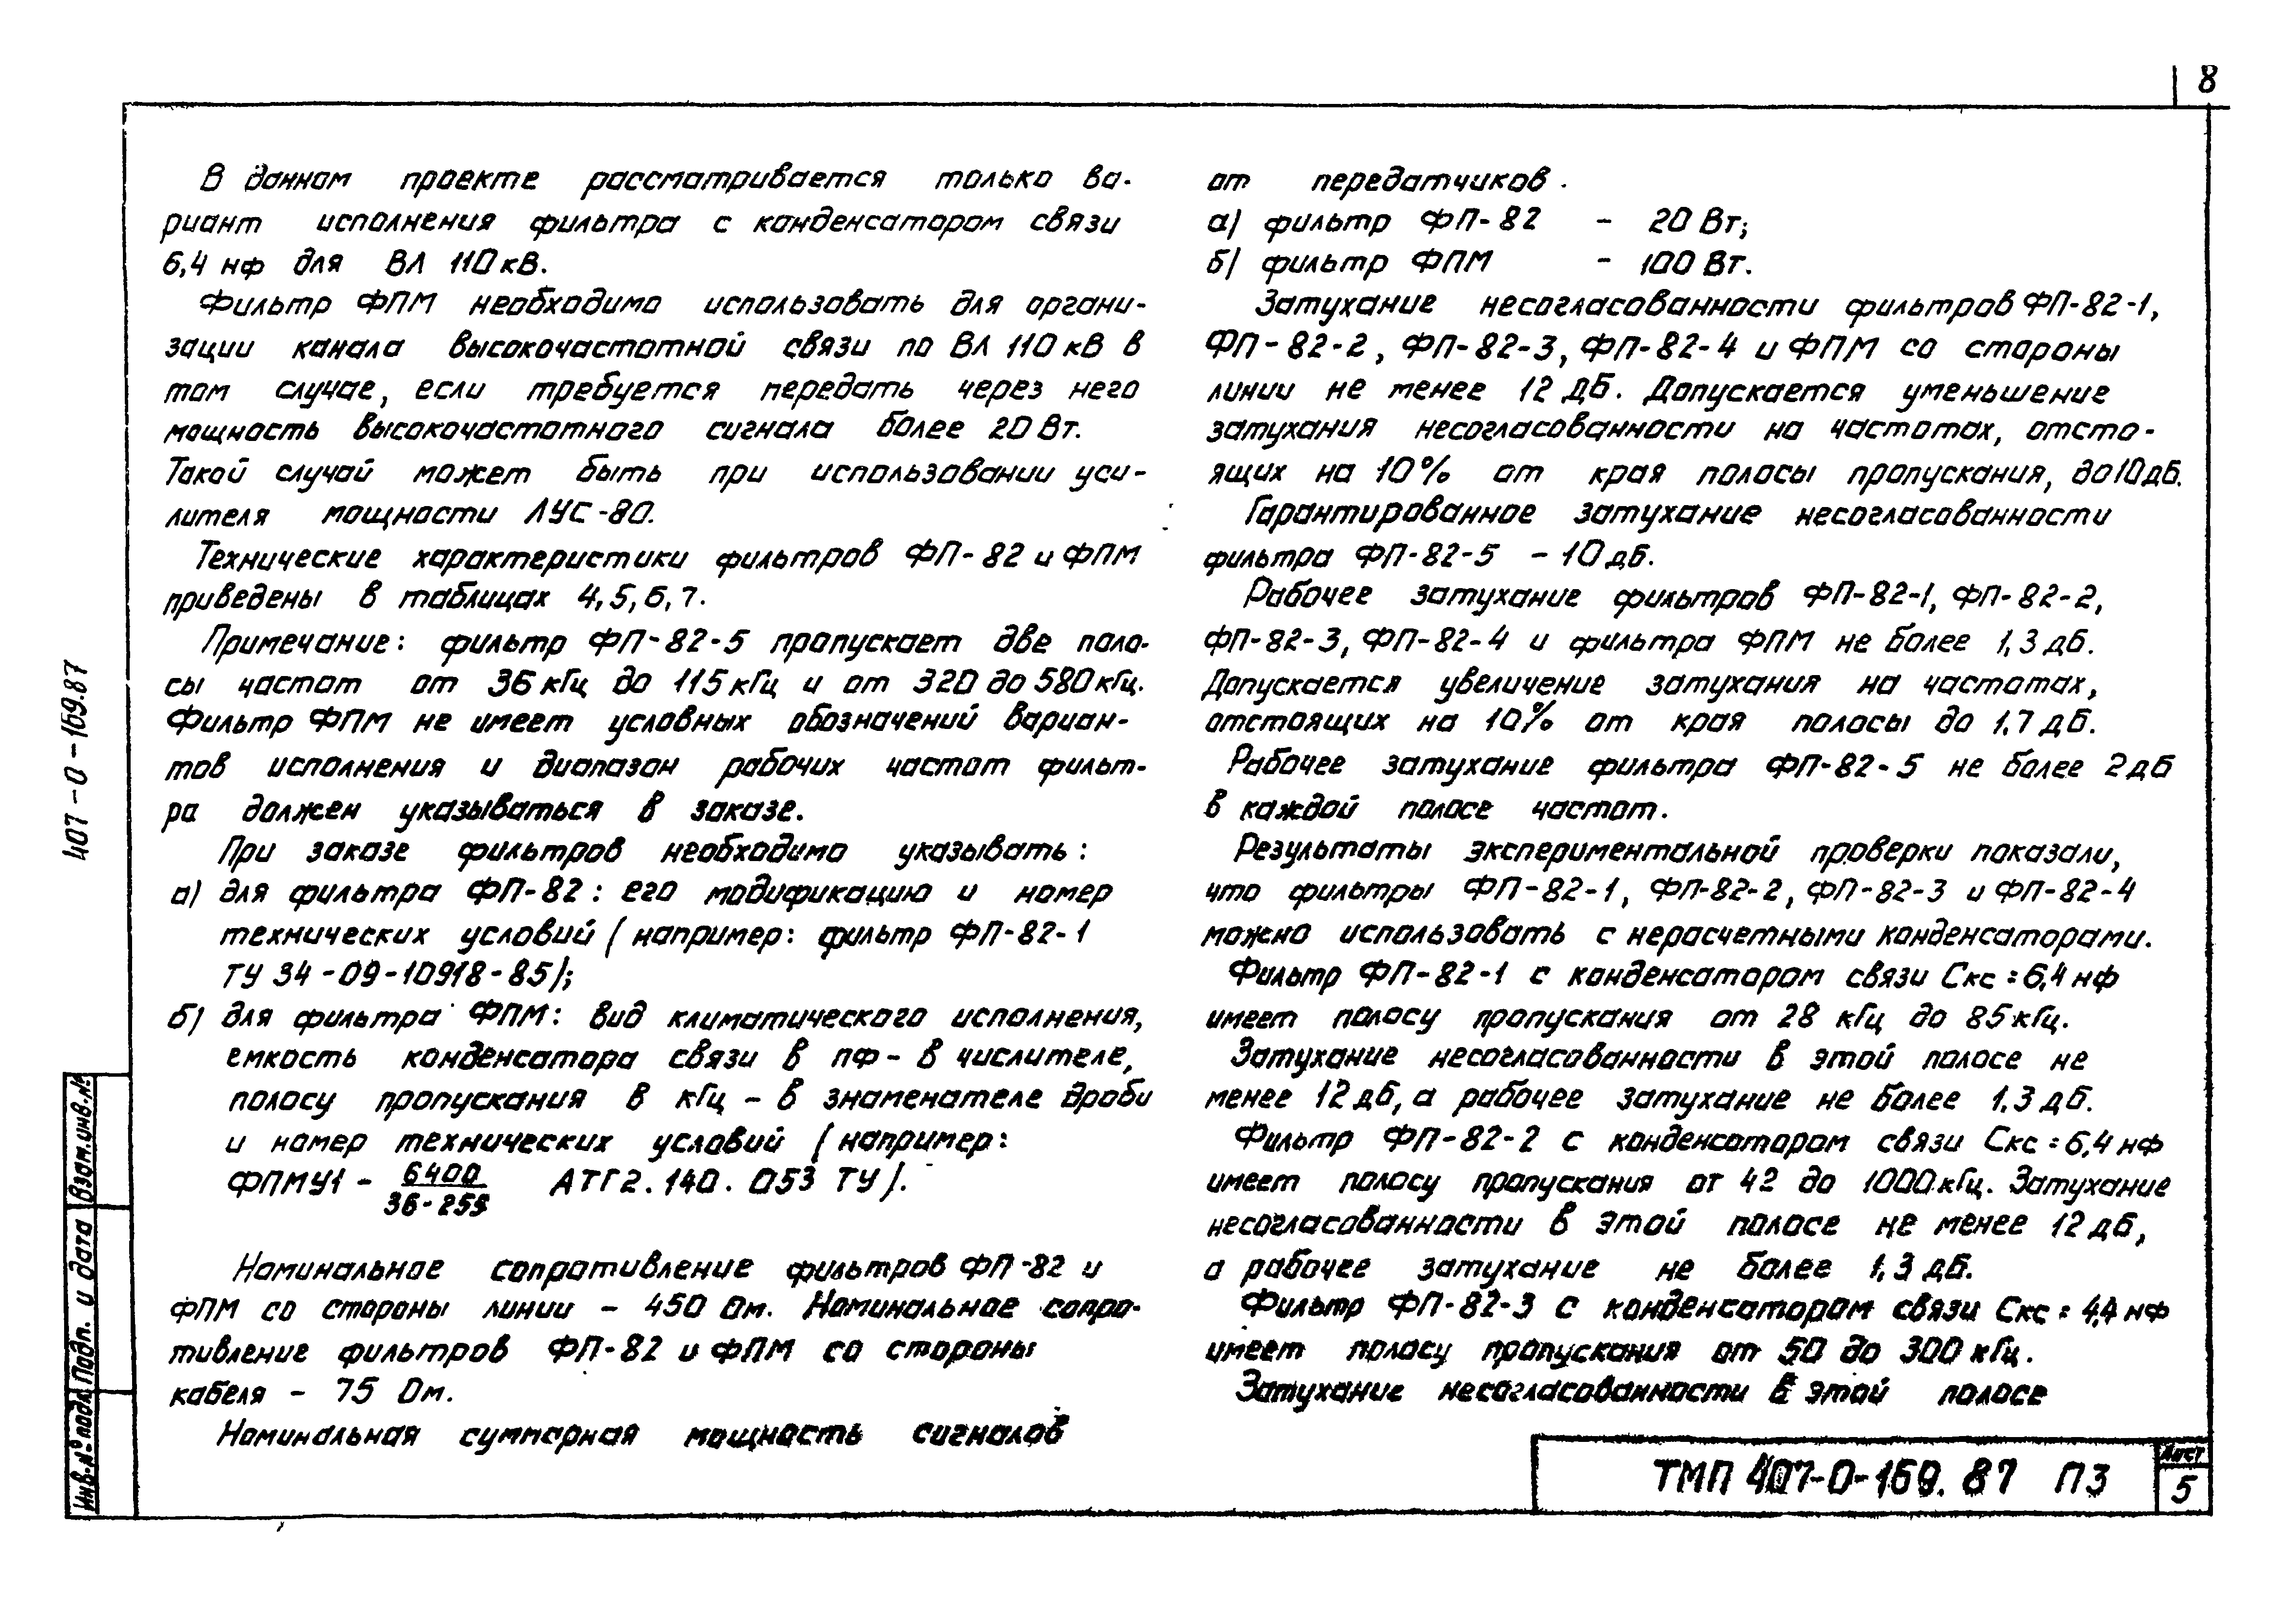 8
В данном проекте рассматривается только ва-
риант исполнения фильтра с конденсатором связи
6,4 нф для ВЛ 110 кВ.
Фильтр ФПМ необходимо использовать для органи-
зации канала высокочастотной связи по ВЛ 110 кВ в
том случае, если требуется передать через него
мощность высокочастотного сигнала более 20 Вт.
Такой случай может быть при использовании уси-
лителя мощности ЛУС-80.
Технические характеристики фильтров ФП-82 и ФПМ
приведены в таблицах 4, 5, 6, 7.
Примечание: фильтр ФП-82-5 пропускает две поло-
сы частот от 36 кГц до 115 кГц и от 320 до 580 кГц.
Фильтр ФПМ не имеет условных обозначений вариан-
тов исполнения и диапазон рабочих частот фильт-
ра должен указываться в заказе.
При заказе фильтров необходимо указывать:
а) для фильтра ФП-82: его модификацию и номер
технических условий (например: фильтр ФП-82-1
ТУ 34-09-10918-85);
б) для фильтра ФПМ: вид климатического исполнения,
емкость конденсатора связи в пФ - в числителе,
полосу пропускания в кГц - в знаменателе дроби
и номер технических условий (например:
ФПМУ1 - 6400 АТГ2.140.053 ТУ).
36-
Номинальное сопротивление фильтров ФП-82 и
ФПМ со стороны линии - 450 Ом. Номинальное сопро-
тивление фильтров ФП-82 и ФПМ со стороны
кабеля - 75 Ом.
Номинальная суммарная мощность сигналов
от передатчиков.
а) фильтр ФП-82 - 20 Вт;
б) фильтр ФПМ - 100 Вт.
Затухание несогласованности фильтров ФП-82-1,
ФП-82-2, ФП-82-3, ФП-82-4 и ФПМ со стороны
линии не менее 12 дБ. Допускается уменьшение
затухания несогласованности на частотах, отсто-
ящих на 10% от края полосы пропускания, до 10 дБ.
Гарантированное затухание несогласованности
фильтра ФП-82-5 - 10 дБ.
Рабочее затухание фильтров ФП-82-1, ФП-82-2,
ФП-82-3, ФП-82-4 и фильтра ФПМ не более 1,3 дБ.
Допускается увеличение затухания на частотах,
отстоящих на 10% от края полосы до 1,7 дБ.
Рабочее затухание фильтра ФП-82-5 не более 2 дБ
в каждой полосе частот.
Результаты экспериментальной проверки показали,
что фильтры ФП-82-1, ФП-82-2, ФП-82-3 и ФП-82-4
можно использовать с нерасчетными конденсаторами.
Фильтр ФП-82-1 с конденсатором связи Скс = 6,4 нф
имеет полосу пропускания от 28 кГц до 85 кГц.
Затухание несогласованности в этой полосе не
менее 12 дБ, а рабочее затухание не более 1,3 дБ.
Фильтр ФП-82-2 с конденсатором связи Скс = 6,4 нф
имеет полосу пропускания от 42 до 1000 кГц. Затухание
несогласованности в этой полосе не менее 12 дБ,
а рабочее затухание не более 1,3 дБ.
Фильтр ФП-82-3 с конденсатором связи Скс = 4,4 нф
имеет полосу пропускания от 50 до 300 кГц.
Затухание несогласованности в этой полосе
407-0-169.87
Взам.инв.№
Подп. и дата
Инв.№ подл.
ТМП 407-0-169.87 ПЗ
Лист
5